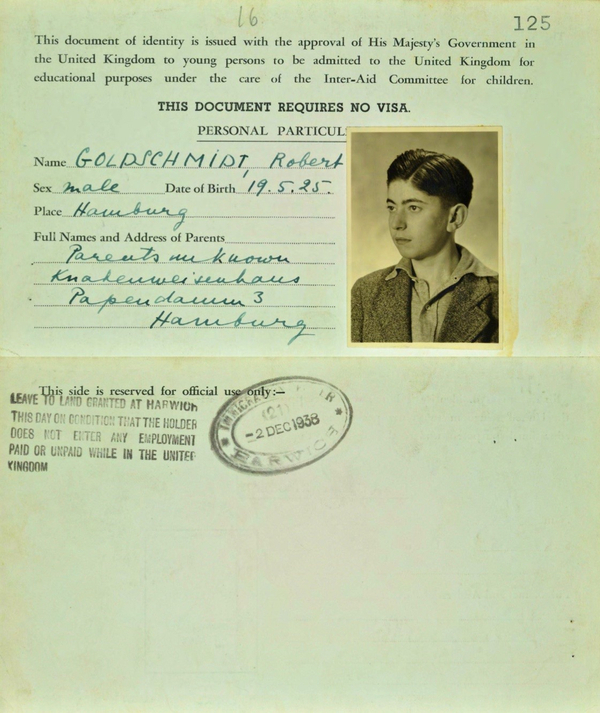 16
125
This document of identity is issued with the approval of His Majesty's Government in
the United Kingdom to young persons to be admitted to the United Kingdom for
educational purposes under the care of the Inter-Aid Committee for children.
THIS DOCUMENT REQUIRES NO VISA.
PERSONAL PARTICUL
Name GOLDSCHMIDT, Robert
Sex male Date of Birth 19.5.25.
Place Hamburg
Full Names and Address of Parents
Parents unknown
Knabenweisenhaus
Papendamm 3
Hamburg
This side is reserved for official use only:—
LEAVE TO LAND GRANTED AT HARWICH
THIS DAY ON CONDITION THAT THE HOLDER
DOES NOT ENTER ANY EMPLOYMENT
PAID OR UNPAID WHILE IN THE UNITED
KINGDOM
IMMIGRATION
(21)
-2 DEC 1938
HARWICH